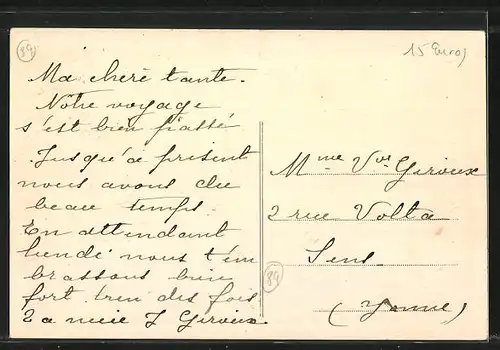 89
15 Euros
Ma chère tante.
Notre voyage
s'est bien passé
Jusqu'à présent
nous avons du
beau temps.
En attendant
nous t'em
brassons bien
fort bien des fois
Ta nièce J Giroux
Mme Vve Giroux
2 rue Volta
Sens
(Yonne)
89